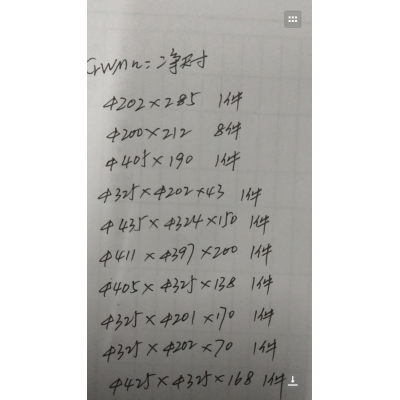 CrWMn=净尺寸
Φ202×285 1件
Φ200×212 8件
Φ405×190 1件
Φ325×Φ202×43 1件
Φ435×Φ324×150 1件
Φ411×Φ397×200 1件
Φ405×Φ325×138 1件
Φ325×Φ201×170 1件
Φ325×Φ202×70 1件
Φ425×Φ325×168 1件